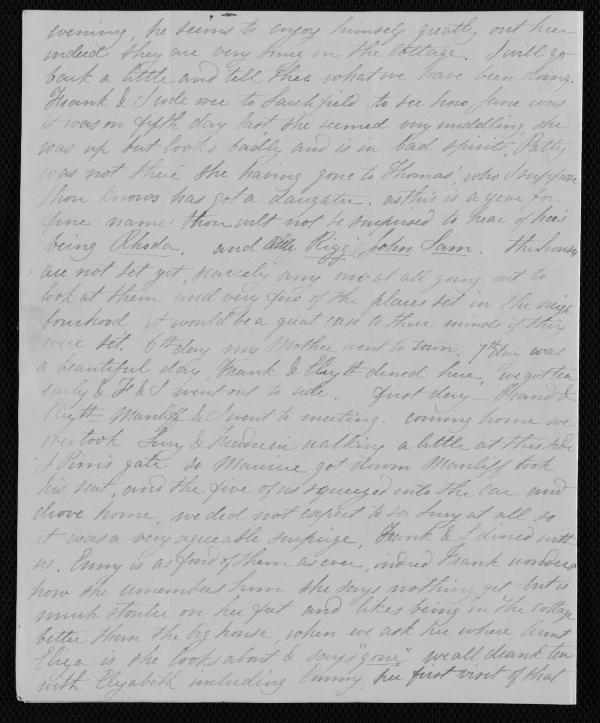 evening, he seems to enjoy himself greatly out here
indeed they are very snug in the cottage. I will go
back a little and tell thee what we have been doing.
Frank & I rode over to Larchfield, to see how Jane was
it was on fifth day last, she seemed very middling, she
was up but looks badly and is in bad spirits, Patty
was not there she having gone to Thomas', who I suppose
thou knows has got a daughter. as this is a year for
fine names thou wilt not be surprised to hear of hers
being Rhoda, and little Rigg John Sam. the houses
are not let yet, scarcely any one at all going out to
look at them and very few of the places let in the neigh
bourhood it would be a great ease to their minds if they
were let. 6th day my Mother went to town. 7th day was
a beautiful day, Frank & Elizth dined here, we got tea
early & F & I went out to ride. first day - Frank &
Elizth Manliff & I went to meeting. coming home we
overtook Lucy & walking a little at this side
of Pim's gate so got down Manliff took
his seat, and the five of us squeezed into the car and
drove home, we did not expect to see Lucy at all so
it was a very agreeable surprise, Frank & E dined with
us. Emmy is as fond of them as ever, indeed Frank wonders
how she remembers him she says nothing yet but is
much stouter on her feet and likes being in the cottage
better than the big house, when we ask her where Aunt
Eliza is she looks about & says "gone" we all drank tea
with Elizabeth including Emmy her first visit of that